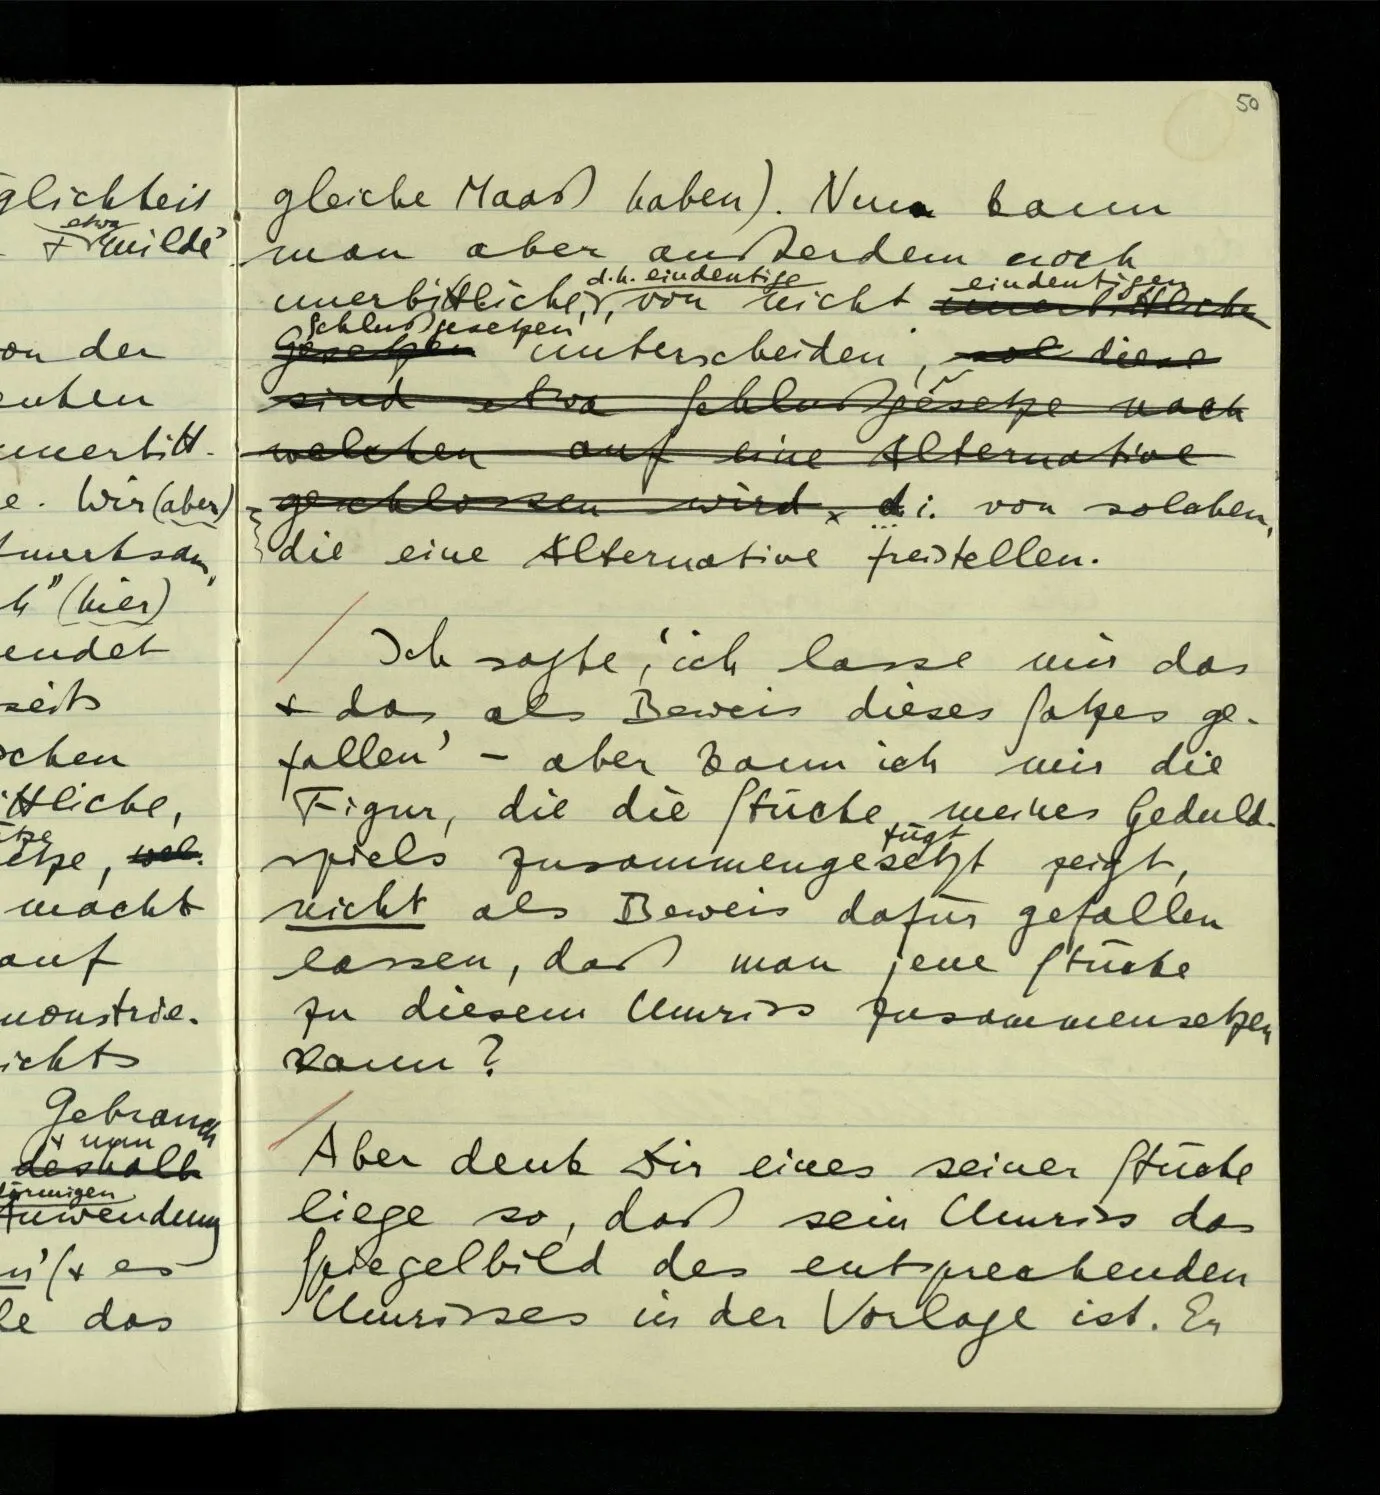 50
glichkeit
etwa
+ 'milde'
on der
enken
unerbitt-
e. Wir (aber)
fmerksam,
h" (hier)
endet
seits
chen
ittliche,
etze, wel-
macht
auf
monstrie-
ichts
Gebrauch
+ man
deshalb
förmigen
Anwendung
n' (+ es
le das
gleiche Maaß haben). Nun kann
man aber außerdem noch
d.h. eindeutige eindeutigen
unerbittliche, von nicht unerbittliche
Schlußgesetzen
Gesetzen unterscheiden, diese
sind etwa Schlußgesetze nach
welchen auf eine Alternative
geschlossen wird, d.i. von solchen,
die eine Alternative freistellen.
Ich sagte, 'ich lasse mir das
+ das als Beweis dieses Satzes ge-
fallen' – aber kann ich mir die
Figur, die die Stücke meines Geduld-
fügt
spiels zusammengesetzt zeigt,
nicht als Beweis dafür gefallen
lassen, daß man jene Stücke
zu diesem Umriss zusammensetzen
kann?
Aber denk Dir eines seiner Stücke
liege so, daß sein Umriss das
Spiegelbild des entsprechenden
Umrisses in der Vorlage ist. Er